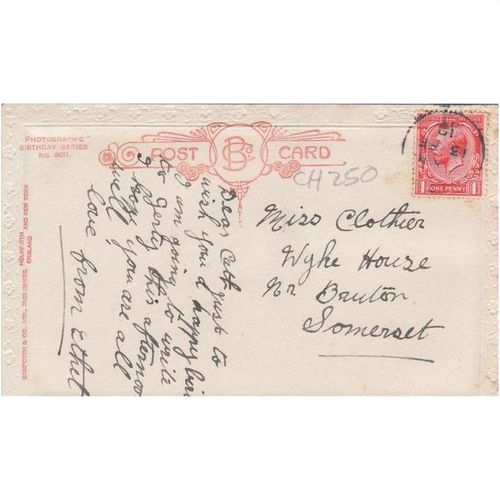 "PHOTOGRAPHIC"
BIRTHDAY SERIES
No. 9011.
POST CARD
CH250
BAMFORTH & CO., LTD., PUBLISHERS, HOLMFIRTH AND NEW YORK
ENGLAND
ONE PENNY
Dear just to
wish you a happy bir
I am going to write
to this afternoon
I hope you are all
well
love from Ethel
Miss Clothier
Wyke House
Nr Bruton
Somerset